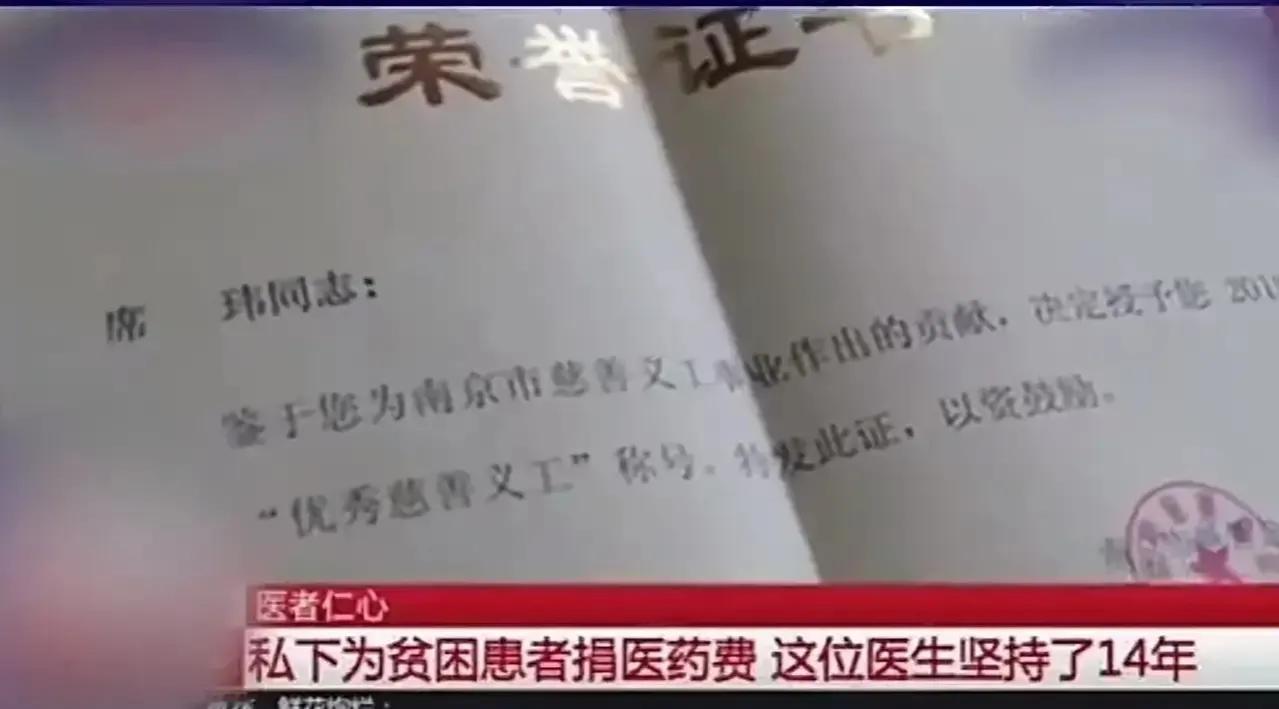 荣誉证书
席 玮同志：
鉴于您为南京市慈善义工事业作出的贡献，决定授予您 201
“优秀慈善义工”称号。特发此证，以资鼓励。
医者仁心
私下为贫困患者捐医药费 这位医生坚持了14年